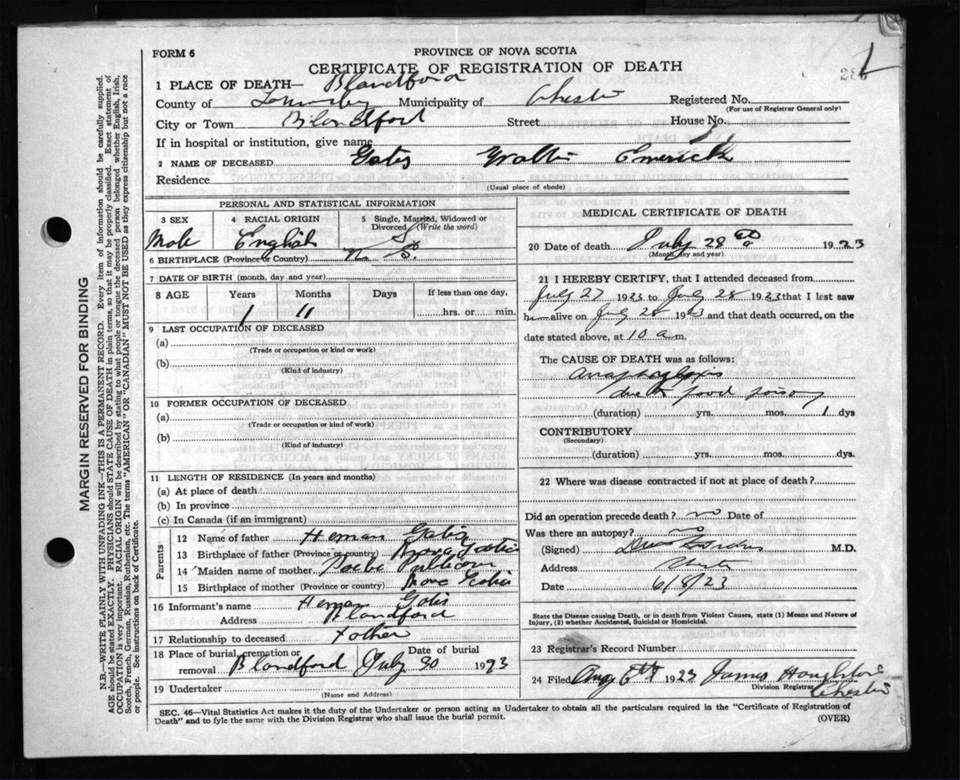 FORM 6
PROVINCE OF NOVA SCOTIA
CERTIFICATE OF REGISTRATION OF DEATH
1 PLACE OF DEATH— Blandford
County of Lunenburg Municipality of Chester Registered No.
(For use of Registrar General only)
City or Town Blandford Street House No.
If in hospital or institution, give name
2 NAME OF DECEASED Gates Walter Emerick
Residence
(Usual place of abode)
PERSONAL AND STATISTICAL INFORMATION
3 SEX 4 RACIAL ORIGIN 5 Single, Married, Widowed or Divorced (Write the word)
Male English S
6 BIRTHPLACE (Province or Country) N. S.
7 DATE OF BIRTH (month, day and year)
8 AGE Years Months Days If less than one day,
1 11 hrs. or min.
9 LAST OCCUPATION OF DECEASED
(a)
(Trade or occupation or kind or work)
(b)
(Kind of industry)
10 FORMER OCCUPATION OF DECEASED
(a)
(Trade or occupation or kind of work)
(b)
(Kind of industry)
11 LENGTH OF RESIDENCE (In years and months)
(a) At place of death
(b) In province
(c) In Canada (if an immigrant)
Parents
12 Name of father Heman Gates
13 Birthplace of father (Province or country) Nova Scotia
14 Maiden name of mother
15 Birthplace of mother (Province or country) Nova Scotia
16 Informant's name Heman Gates
Address Blandford
17 Relationship to deceased Father
18 Place of burial, cremation or removal Blandford Date of burial July 30 1923
19 Undertaker
(Name and Address)
MEDICAL CERTIFICATE OF DEATH
20 Date of death July 28th 1923
(Month, day and year)
21 I HEREBY CERTIFY, that I attended deceased from
July 27 1923 to July 28 1923 that I last saw
him alive on July 28 1923 and that death occurred, on the
date stated above, at 10 a m.
The CAUSE OF DEATH was as follows:
Anaphylaxis
due to food poison
(duration) yrs. mos. 1 dys
CONTRIBUTORY
(Secondary)
(duration) yrs. mos. dys.
22 Where was disease contracted if not at place of death?
Did an operation precede death? no Date of
Was there an autopsy? no
(Signed) M.D.
Address Chester
Date 6/8/23
State the Disease causing Death, or in death from Violent Causes, state (1) Means and Nature of
Injury, (2) whether Accidental, Suicidal or Homicidal.
23 Registrar's Record Number
24 Filed Aug 6th 1923 James Houghton
Division Registrar Chester
SEC. 46—Vital Statistics Act makes it the duty of the Undertaker or person acting as Undertaker to obtain all the particulars required in the "Certificate of Registration of
Death" and to fyle the same with the Division Registrar who shall issue the burial permit.
(OVER)
MARGIN RESERVED FOR BINDING
N.B.—WRITE PLAINLY WITH UNFADING INK—THIS IS A PERMANENT RECORD. Every item of information should be carefully supplied.
AGE should be stated EXACTLY. PHYSICIANS should STATE CAUSE OF DEATH in plain terms, so that it may be properly classified. Exact statement of
OCCUPATION is very important. RACIAL ORIGIN will be described by stating to what people or tongue the deceased person belonged whether English, Irish,
Scotch, French, German, Russian, Ruthenian, etc. The terms "AMERICAN" OR "CANADIAN" MUST NOT BE USED as they express citizenship but not a race
or people. See instructions on back of Certificate.